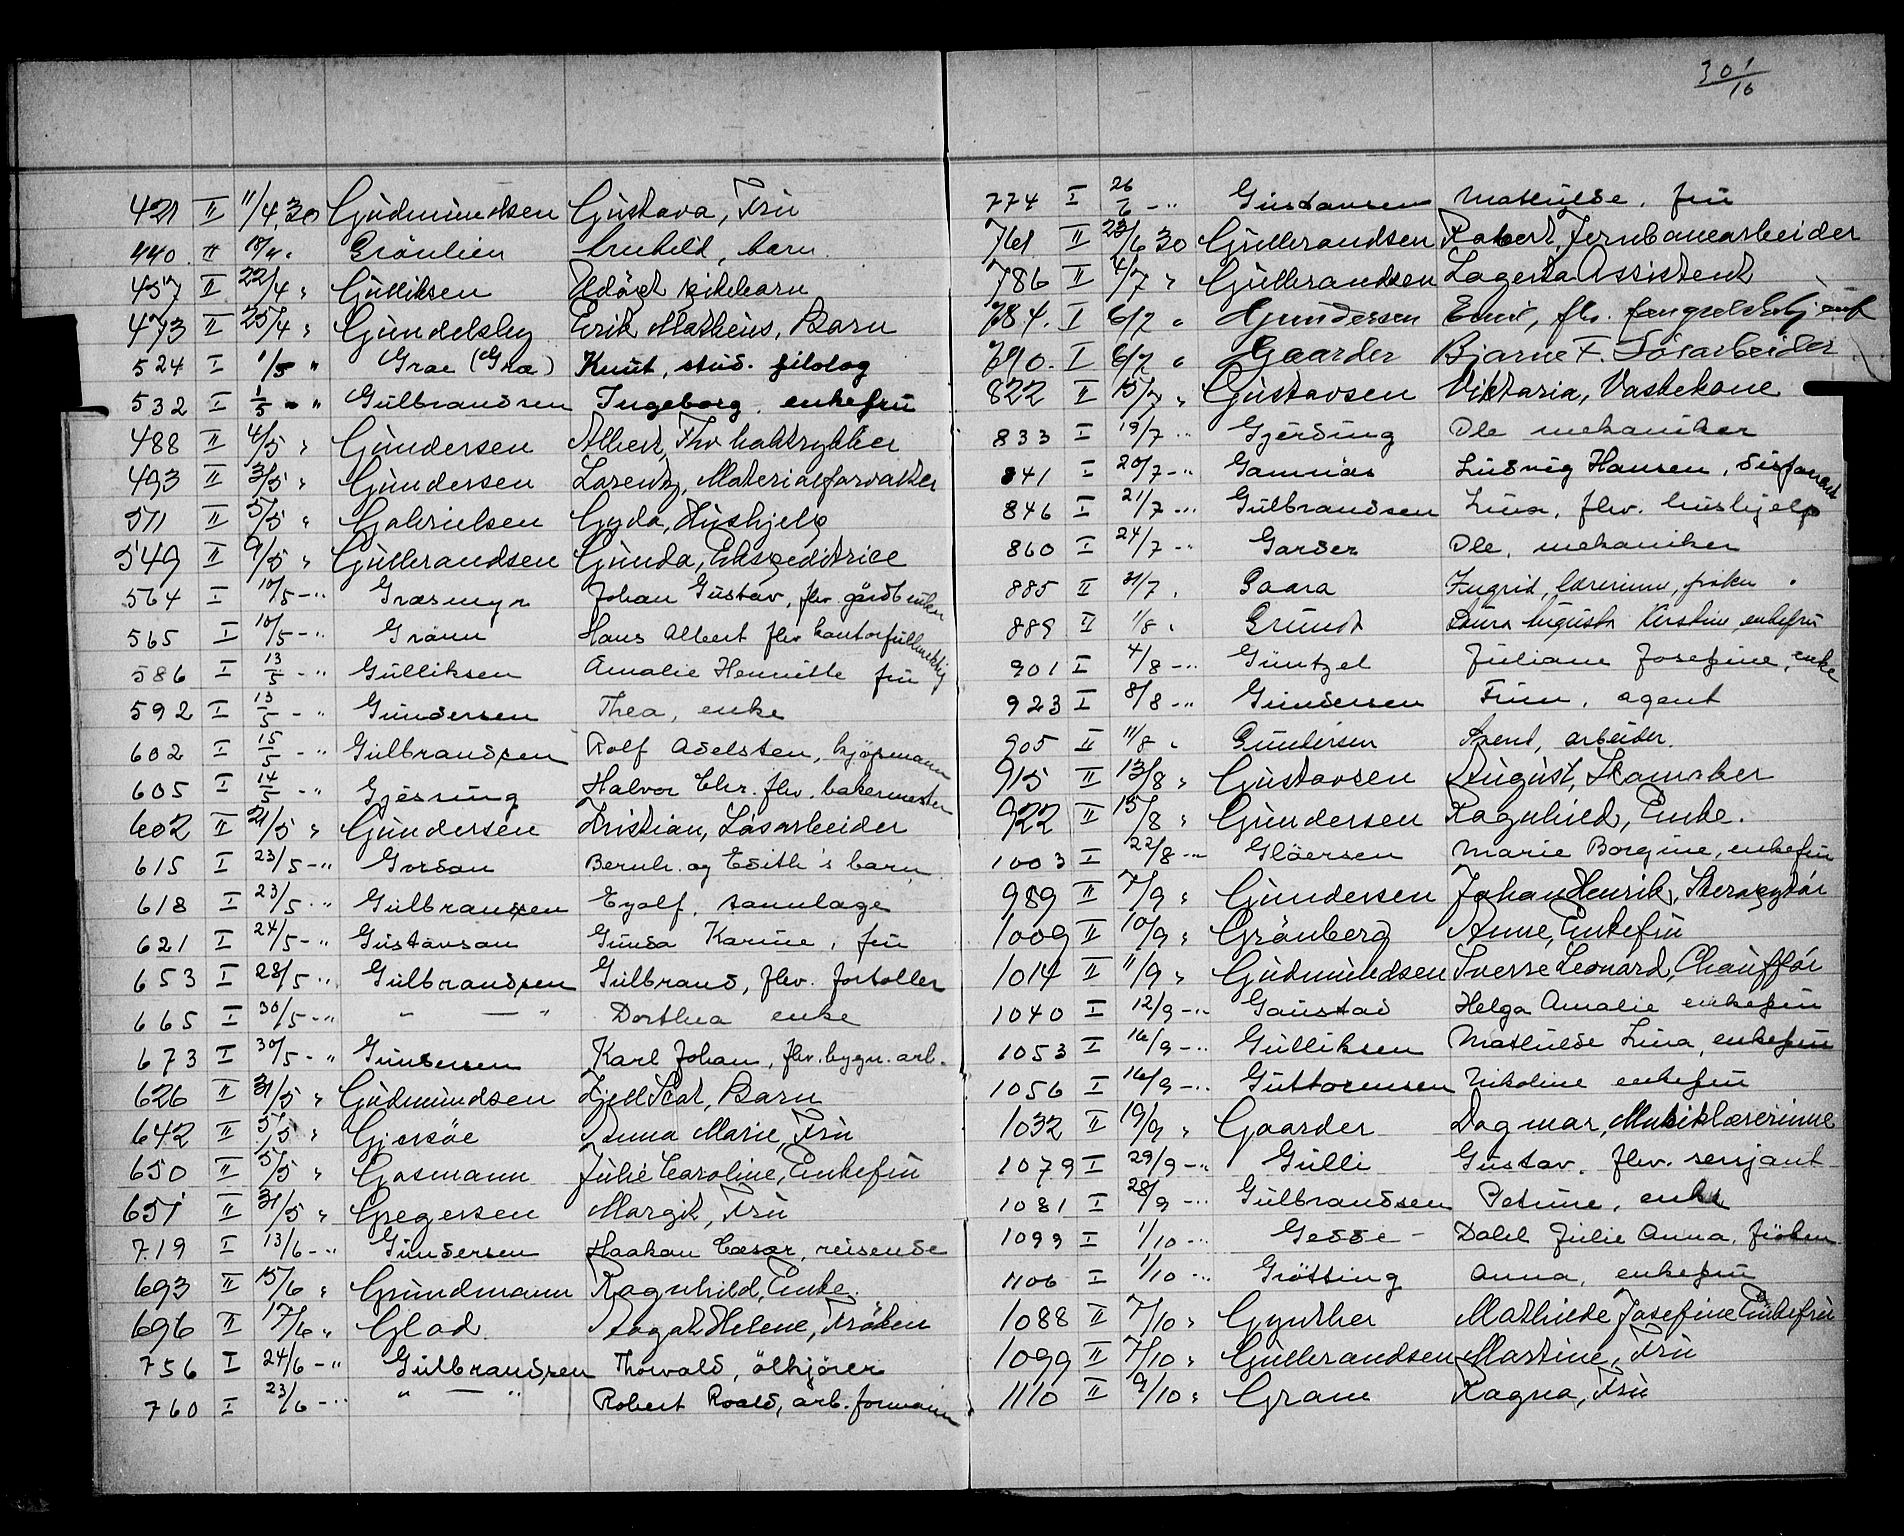 421 II 11/4 30 Gudmundsen Gustava, Fru
440. II 18/4 " Grönlien barn.
457 II 22/4 " Gulliksen Udöpt pikebarn
473 II 25/4 " Gundelsby Erik Matheus, Barn
524 I 1/5 " Grae (Græ) Knut, stud. filolog
532 I 1/5 - " Gulbrandsen Ingeborg, enkefru
488 II 4/5 " Gundersen Albert, Fhv.
493 II 3/5 " Gundersen Lorentz, Materialforvalter
511 II 5/5 " Gabrielsen Gyda, Hushjelp
549 II 9/5 " Gulbrandsen Gunda, Ekspeditrice
564 I 10/5 - " Græsmyr Johan Gustav, fhv. gårdbruker
565 I 10/5 - " Grönn Hans Albert fhv kontorfullmektig
586 I 13/5 - " Gulliksen Amalie Henriette fru
592 I 13/5 - " Gundersen Thea, enke
602 I 15/5 - " Gulbrandsen Rolf Adelsten, kjöpmann
605 I 14/5 - " Gjesring Halvor Chr. fhv. bakermester
602 II 21/5 " Gundersen Kristian, Løsarbeider
615 I 23/5 - " Gordon Bernh. og Edith's barn
618 I 23/5 - " Gulbransen Eyolf, tannlæge
621 I 24/5 - " Gustavson Gunda Karine, fru
653 I 28/5 - " Gulbrandsen Gulbrand, fhv. fortoller
665 I 30/5 - " " — " Dorthea enke
673 I 30/5 - " Gundersen Karl Johan, fhv. bygn. arb.
626 II 31/5 " Gudmundsen Kjell Barn
642 II 5/5 " Gjersöe Anna Marie, Fru
650 II 5/5 " Gosmann Julie Caroline, Enkefru
651 II 31/5 " Gregersen Margit, Fru
719 I 13/6 - " Gundersen Haakon Cæsar, reisende
693 II 15/6 " Grundmann Ragnhild, Enke.
696 II 17/6 " Glad Aagot Helene, Fröken
756 I 24/6 - " Gulbrandsen Thorvald, ölkjörer
760 I 23/6 - " " — " Robert Roald, arb. formann
30 1/10
774 I 26/6 - " Gustavsen Mathilde, fru
761 II 23/6 30 Gulbrandsen Robert, Jernbanearbeider
786 II 4/7 " Gulbrandsen Lagerta Assistent
784. I 6/7 " Gundersen Emil, fhv.
790. I 6/7 " Gaarder Bjarne F. Løsarbeider
822 II 15/7 " Gustavsen Viktoria, Vaskekone
833 I 19/7 - " Gjerding Ole mekaniker
841 I 20/7 - " Gamnäs Ludvig Hansen, disponent
846 I 21/7 - " Gulbrandsen Lina, fhv. hushjelp
860 I 24/7 - " Garder Ole, mekaniker
885 II 31/7 " Gaara Ingrid, lærerinne, frøken
889 II 1/8 " Grundt Laura Augusta Kirstine, enkefru
901 I 4/8 - " Güntzel Juliane Josefine, enke
923 I 8/8 - " Gundersen Finn, agent
905 II 11/8 " Gundersen Svend, arbeider.
915 II 13/8 " Gustavsen August, Skomaker
922 II 15/8 " Gundersen Ragnhild, Enke.
1003 I 22/8 - " Glöersen Marie Borgine, enkefru
989 II 7/9 " Gundersen Johan Henrik, Stereotypör
1009 II 10/9 " Grönberg Anne, Enkefru
1014 II 11/9 " Gudmundsen Sverre Leonard, Chaufför
1040 I 12/9 - " Gaustad Helga Amalie enkefru
1053 I 16/9 - " Gulliksen Mathilde Lina, enkefru
1056 I 16/9 - " Guttormsen Nikoline enkefru
1032 II 19/9 " Gaarder Dagmar, Musiklærerinne
1079 I 29/9 - " Gulli Gustav. fhv. sersjant
1081 I 28/9 - " Gulbrandsen Petrine, enke
1099 I 1/10 - " Gedde - Dahl Julie Anna, fröken
1106 I 1/10 - " Grötting Anna, enkefru
1088 II 7/10 " Gynther Mathilde Josefine Enkefru
1099 II 7/10 " Gulbrandsen Martine, Fru
1110 II 9/10 " Gram Ragna, Fru